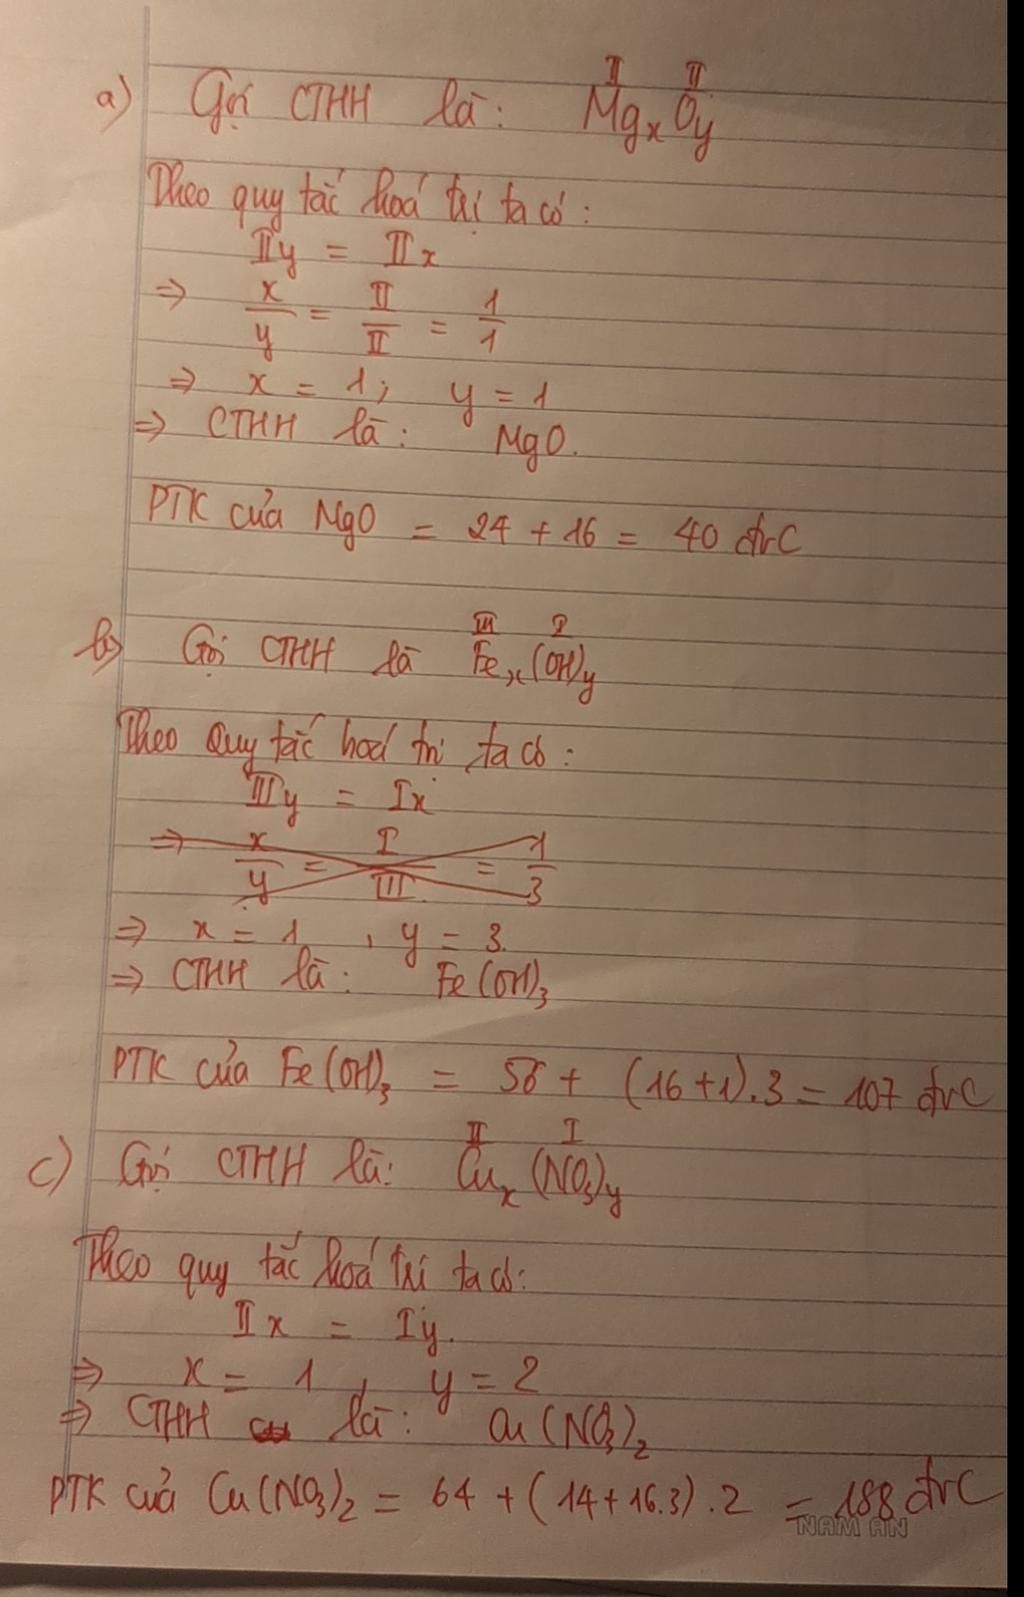 a) Gọi CTHH là: II II MgxOy
Theo quy tắc hoá trị ta có:
IIy = IIx
⇒ x/y = II/II = 1/1
⇒ x = 1; y = 1
⇒ CTHH là: MgO.
PTK của MgO = 24 + 16 = 40 đvC
b) Gọi CTHH là III I Fex(OH)y
Theo Quy tắc hoá trị ta có:
IIIy = Ix
⇒ x/y = I/III = 1/3
⇒ x = 1, y = 3.
⇒ CTHH là: Fe(OH)3
PTK của Fe(OH)3 = 56 + (16+1).3 = 107 đvC
c) Gọi CTHH là: II I Cux(NO3)y
Theo quy tắc hoá trị ta có:
IIx = Iy.
⇒ x = 1, y = 2
⇒ CTHH là: Cu(NO3)2
PTK của Cu(NO3)2 = 64 + (14+16.3).2 = 188 đvC
NAM AN